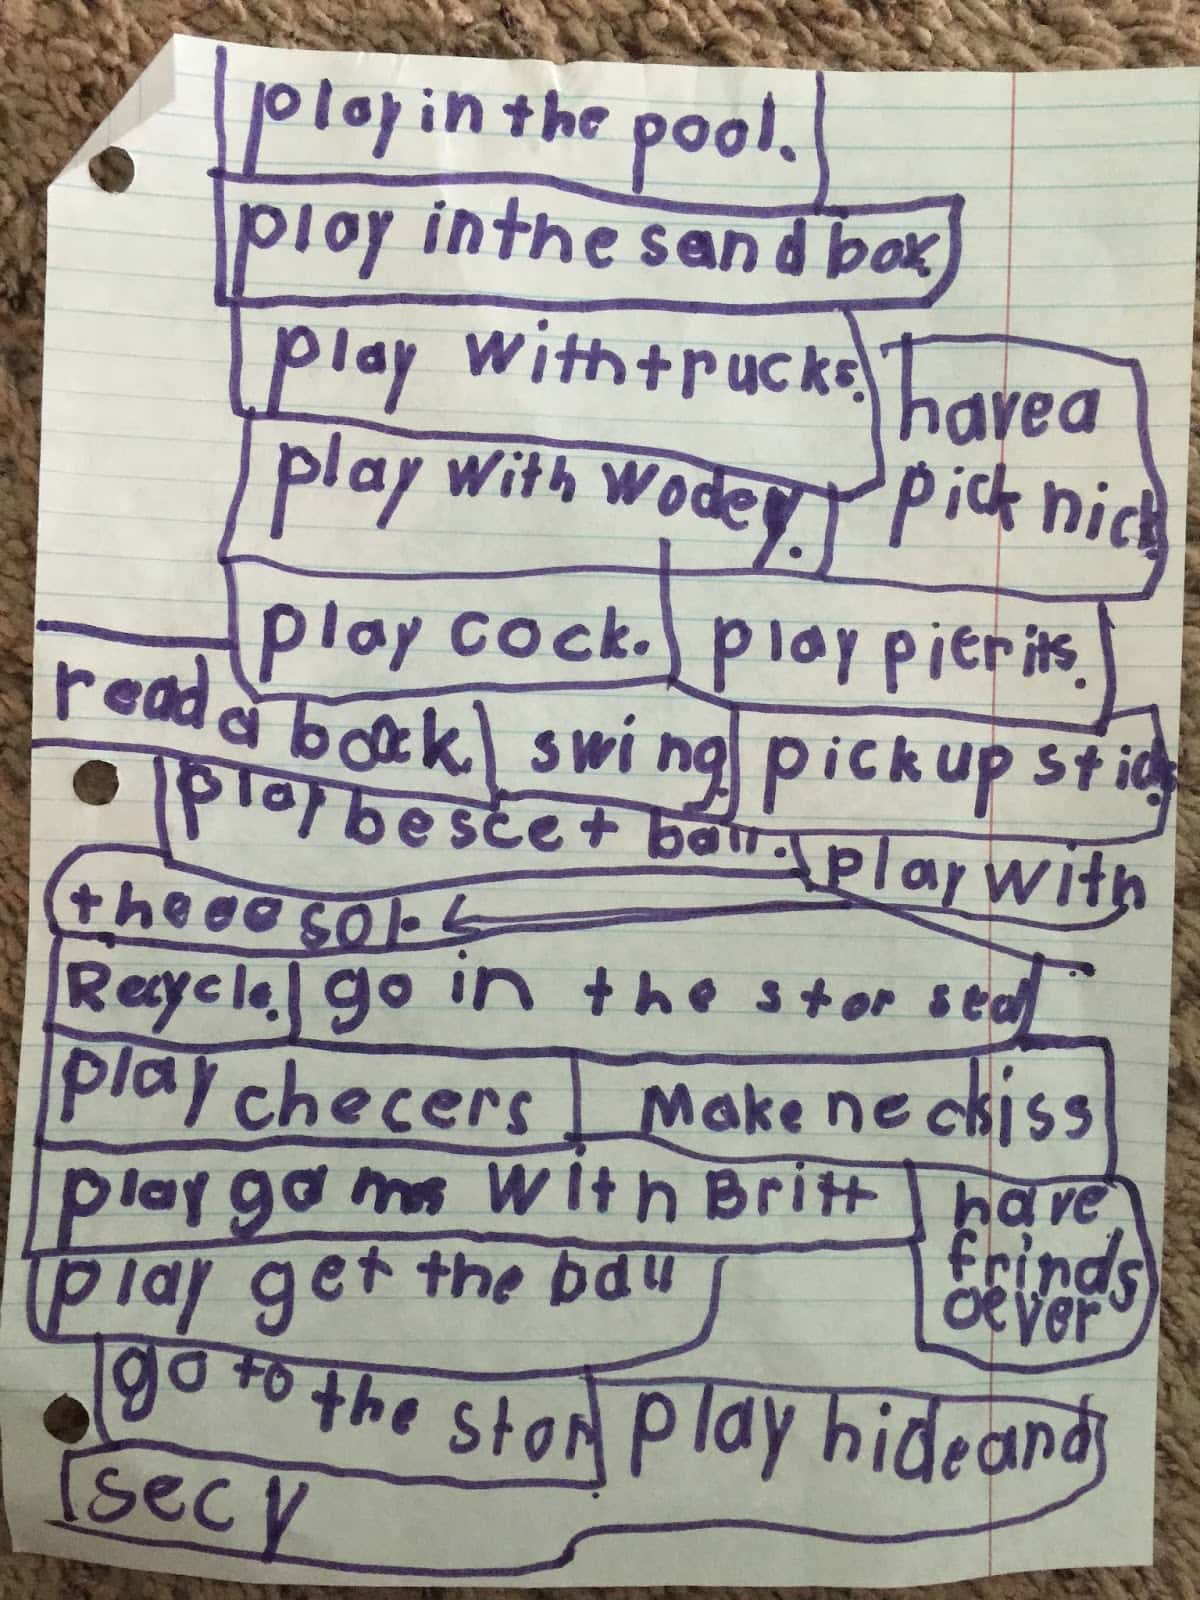 play in the pool.
play in the sand box
play with trucks.
have a
pick nick.
play with Wodey.
play cock.
play pierits.
read a book.
swing.
pick up stick.
play bescet ball.
play with
the
Recycle.
go in the stor
play checers
Make neckiss
play gams with Britt
have
frinds
oever
play get the ball
go to the stor
play hide and
secy